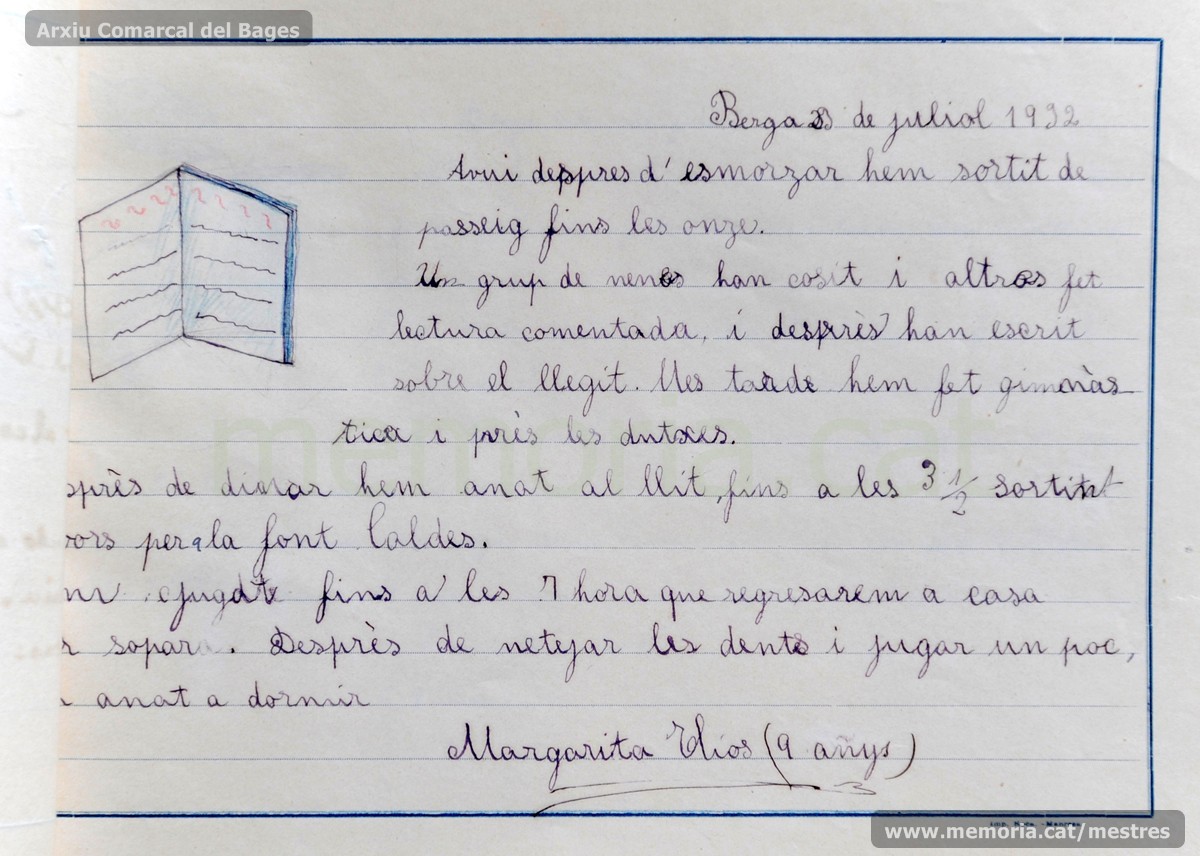 Arxiu Comarcal del Bages
Berga 23 de juliol 1932
Avui despres d'esmorzar hem sortit de
passeig fins les onze.
Un grup de nenes han cosit i altres fet
lectura comentada, i desprès han escrit
sobre el llegit. Mes tarde hem fet gimnàs
tica i près les dutxes.
sprès de dinar hem anat al llit, fins a les 3 1/2 sortint
vors per a la font Caldes.
jugat fins a les 7 hora que regresarem a casa
r sopar. Desprès de netejar les dents i jugar un poc,
anat a dormir
Margarita Elios (9 añys)
www.memoria.cat/mestres
memoria.cat